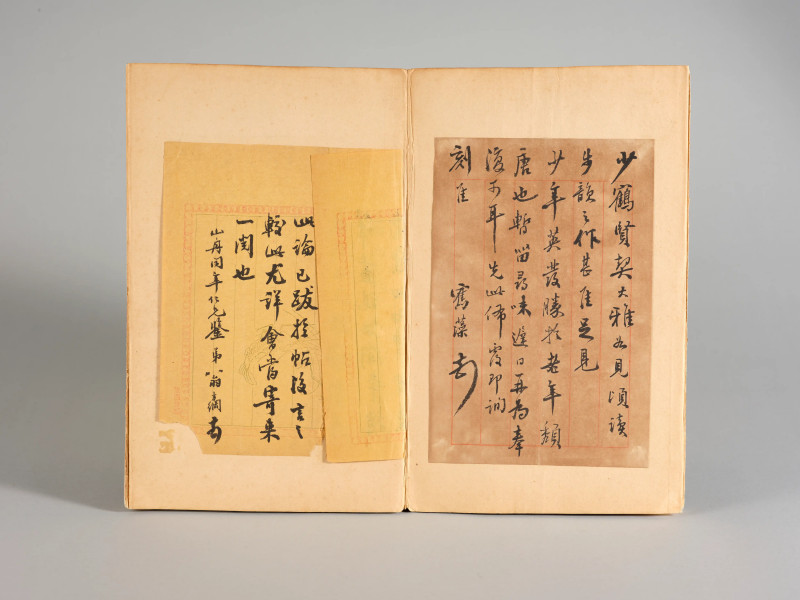 少鶴賢契大雅如見頃讀
步韻之作甚佳足見
少年英發勝於老年頹
唐也暫留尋味遲日再為奉
復可耳先此佈覆即詢
刻佳
寯藻
此論已跋於帖後言之
較此尤詳會當寄来
一閱也
山舟同年仁兄鑒弟翁